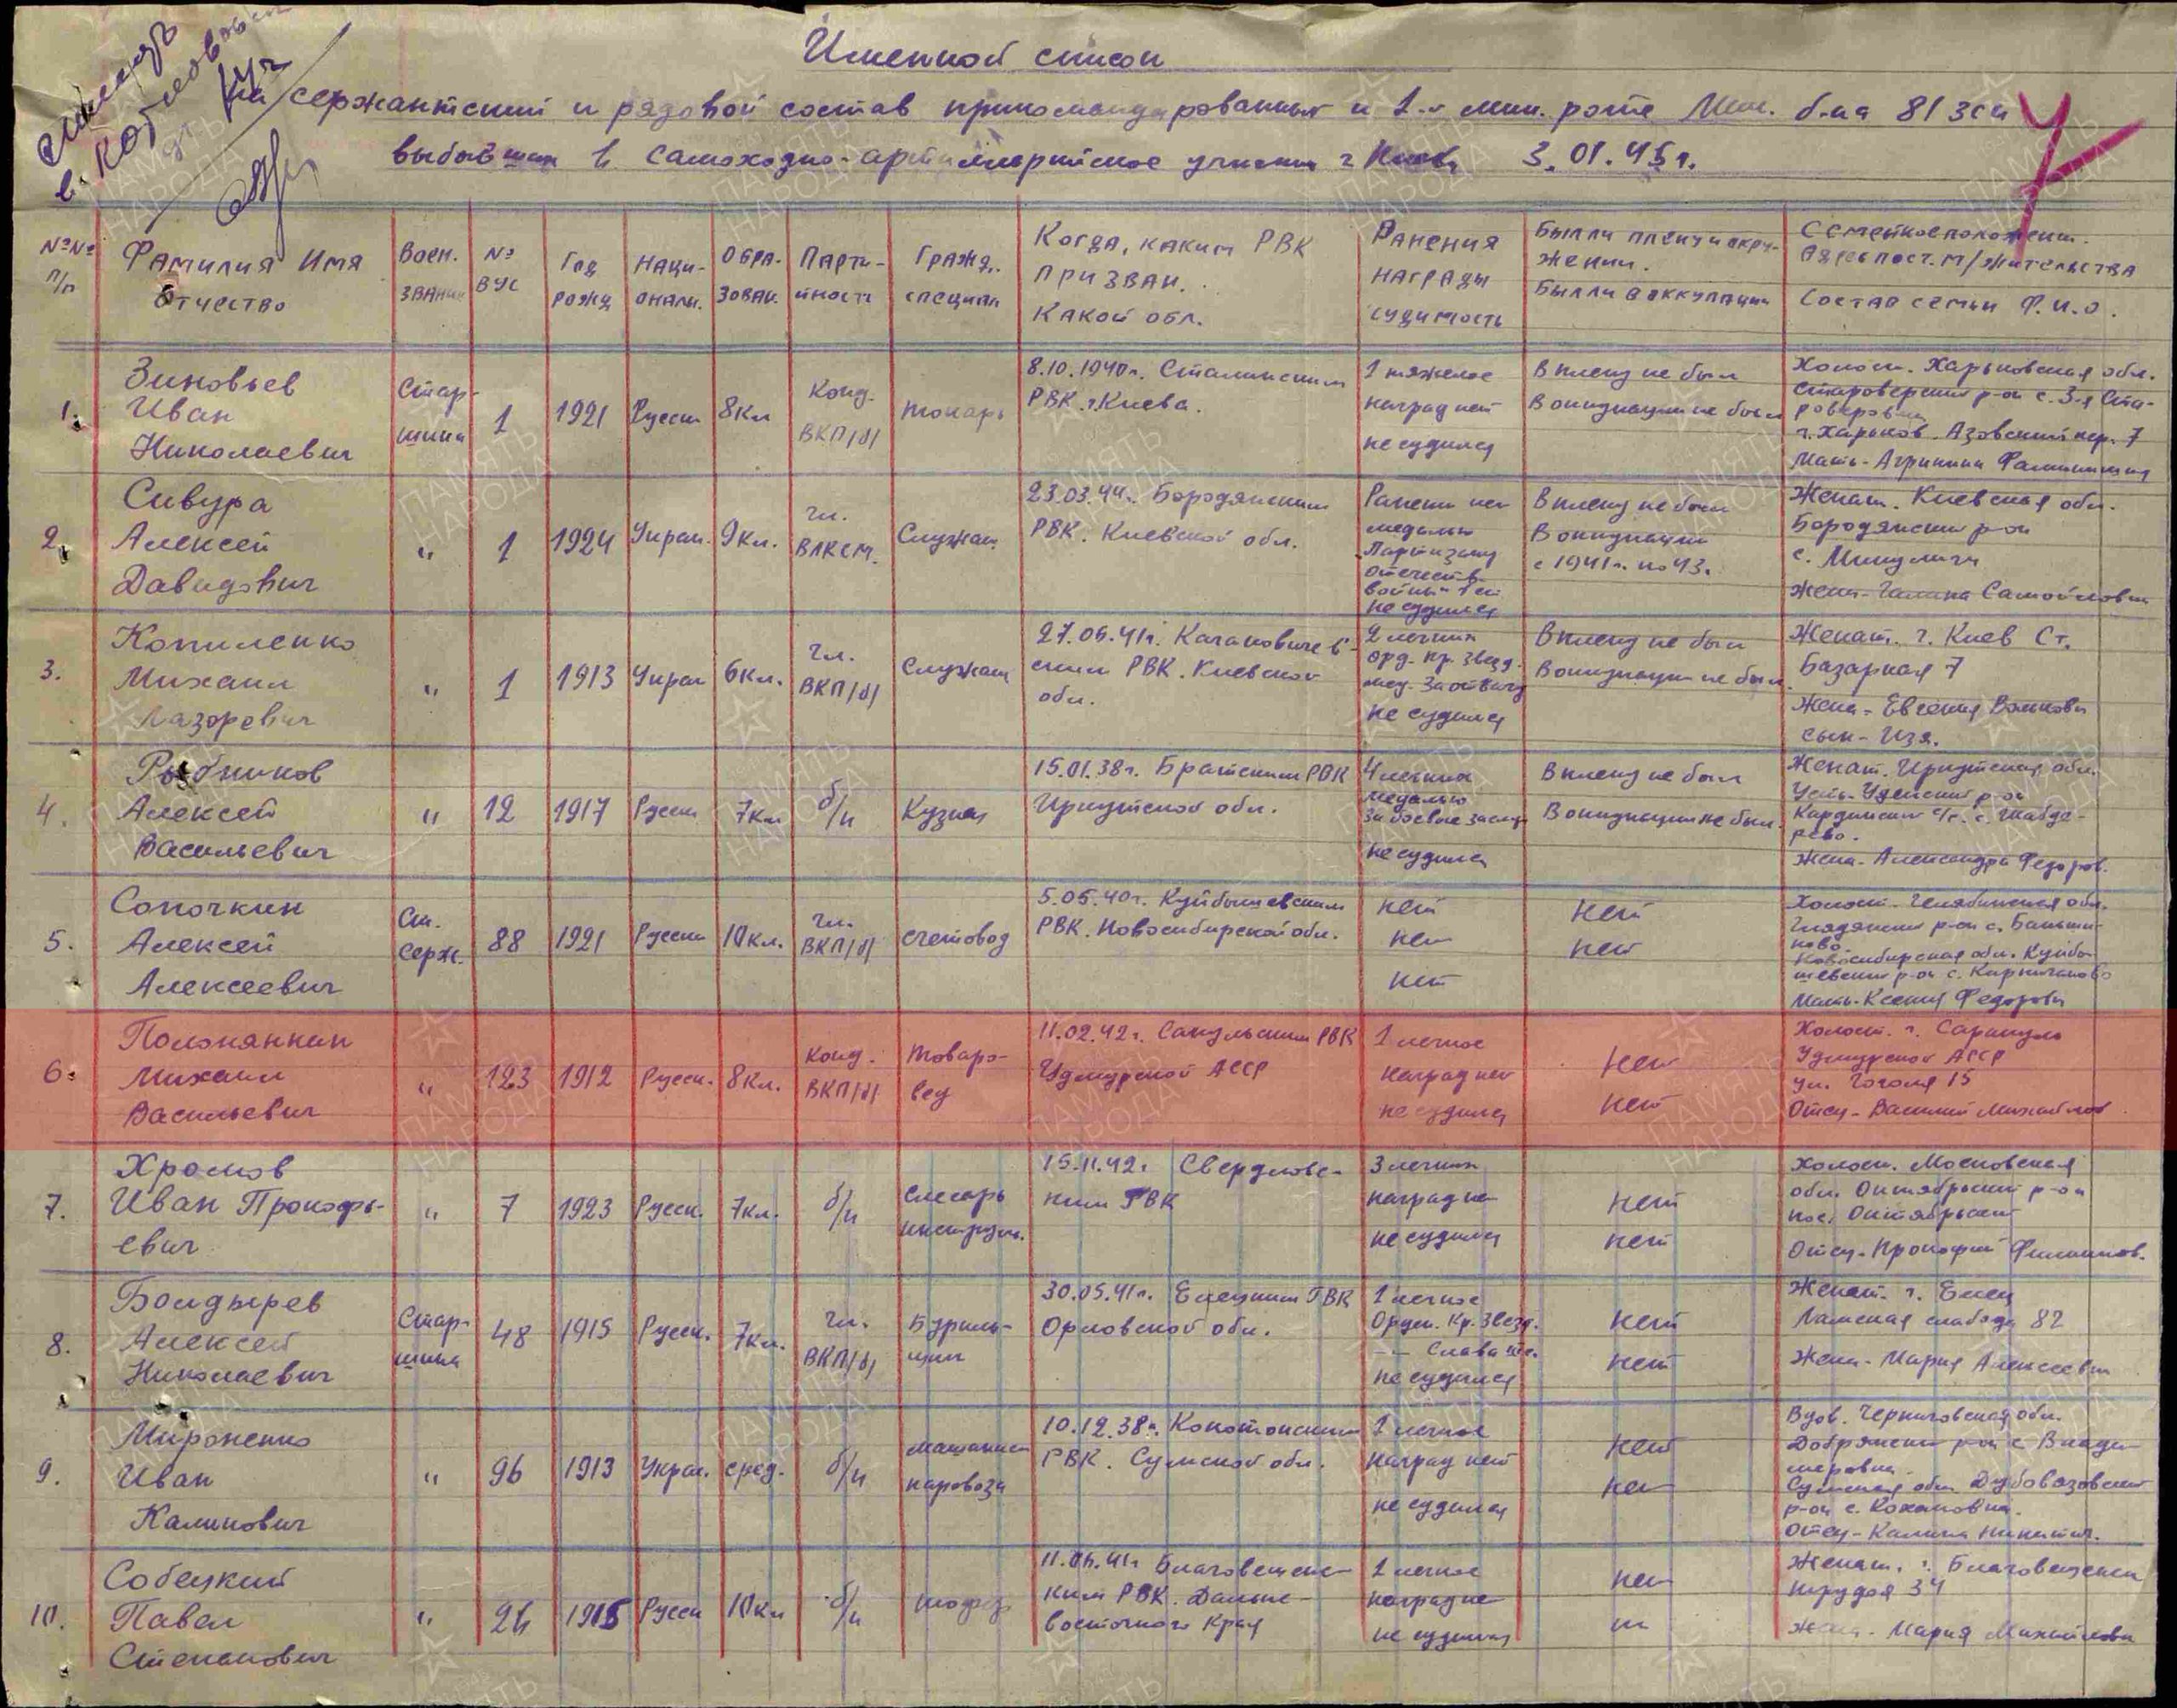 Именной список
на сержантский и рядовой состав прикомандированных к 1-й мин. роте Мин. б-на 81 зсп
выбывших в самоходно-артиллерийское училище г Киева 3.01.45г.
№№ п/п
Фамилия Имя Отчество
Воен. звание
№ ВУС
Год рожд
Наци-ональн.
Обра-зован.
Парти-йность
Гражд. специальн
Когда, каким РВК призван. Какой обл.
Ранения награды судимость
Был ли в плену и окру-жении. Был ли в оккупации
Семейное положение. Адрес пост. м/жительства Состав семьи Ф.И.О.
1.
Зиновьев
Иван
Николаевич
Стар-
шина
1
1921
Русск
8кл
Конд.
ВКП/б/
токарь
8.10.1940г. Сталинским
РВК г.Киева.
1 тяжелое
наград нет
не судился
В плену не был
В оккупации не был
Холост. Харьковская обл.
Староверский р-он с. 3-я Ста-
роверовка
г. Харьков. Азовский пер. 7
Мать-Агрипина
2.
Сивура
Алексей
Давидович
"
1
1924
Украи.
9кл.
чл.
ВЛКСМ.
Служащ.
23.03.44г. Бородянским
РВК. Киевской обл.
Ранени нет
медалью
Партизану
отечеств.
войны" 1 ст
не судился
В плену не был
В оккупации
с 1941г. по 43.
Женат. Киевская обл.
Бородянский р-он
с. Микуличи
Жена-Галина Самойловна
3.
Копиленко
Михаил
Лазоревич
"
1
1913
Украи
6кл.
чл.
ВКП/б/
Служащ
41г. Кагановичев-
ским РВК. Киевской
обл.
2 легких
орд. Кр. Звезд.
мед. За отвагу
не судился
В плену не был
В оккупации не был.
Женат. г. Киев Ст.
Базарная 7
Жена-Евгения
сын-Изя.
4.
Рыбников
Алексей
Васильевич
"
12
1917
Русск
7кл
б/п
Кузнец
15.01.38г. Братским РВК
Иркутской обл.
4 легких
медалью
За боевые заслуг
не судился
В плену не был
В оккупации не был.
Женат. Иркутская обл.
Усть-Удинский р-он
с/с. с.
Жена-Александра Федоров.
5.
Сопочкин
Алексей
Алексеевич
Ст.
Серж.
88
1921
Русски
10кл.
чл.
ВКП/б/
счетовод
5.05.40г. Куйбышевским
РВК. Новосибирской обл.
нет
нет
нет
нет
нет
Холост. Челябинская обл.
р-он с.
Новосибирская обл. Куйбы-
шевский р-он с.
Мать-Ксения Федоровн
6.
Положянкин
Михаил
Васильевич
"
123
1912
Русск.
8кл.
Конд.
ВКП/б/
Товаро-
вед
11.02.42г. Сапульским РВК
Удмурской АССР
1 легкое
наград нет
не судился
нет
нет
Холост. г. Сарапуль
Удмурской АССР
ул. Гоголя 15
Отец-Василий Михайлов
7.
Хромов
Иван Прокофь-
евич
"
7
1923
Русск.
7кл.
б/п
слесарь
инструмен.
15.11.42г. Свердловс-
ким ГВК
3 легких
наград не
не судился
нет
нет
Холост. Московская
обл. Октябрьский р-он
пос. Октябрьский
Отец-Прокофий Филиппов.
8.
Болдырев
Алексей
Николаевич
Стар-
шина
48
1915
Русск.
7кл.
чл.
ВКП/б/
Буриль-
щик
30.05.41г. Елецким ГВК
Орловской обл.
1 легкое
Орден. Кр. Звезд.
-"- Слава
не судился
нет
нет
Женат. г. Елец
Ламская слобода 82
Жена-Мария Алексеевн
9.
Мироненко
Иван
Калинович
"
96
1913
Украи.
сред.
б/п
машинист
паровоза
10.12.38г. Конотопским
РВК. Сумской обл.
1 легкое
наград нет
не судился
нет
нет
Вдов. Черниговская обл.
Добрянский р-он с Влади-
меровка.
Сумская обл. Дубовязовский
р-он с. Кохановка.
Отец-Калина Никитич.
10.
Собецкий
Павел
Степанович
"
26
1915
Русск
10кл
б/п
шофер
41г Благовещенс-
ким РВК. Дальне-
восточного Края
1 легкое
наград не
не судился
нет
Женат. г. Благовещенск
34
Жена-Мария Михайловн